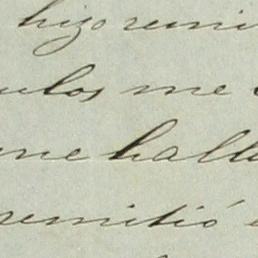 hizo remi
ulos me
me hall
remitió